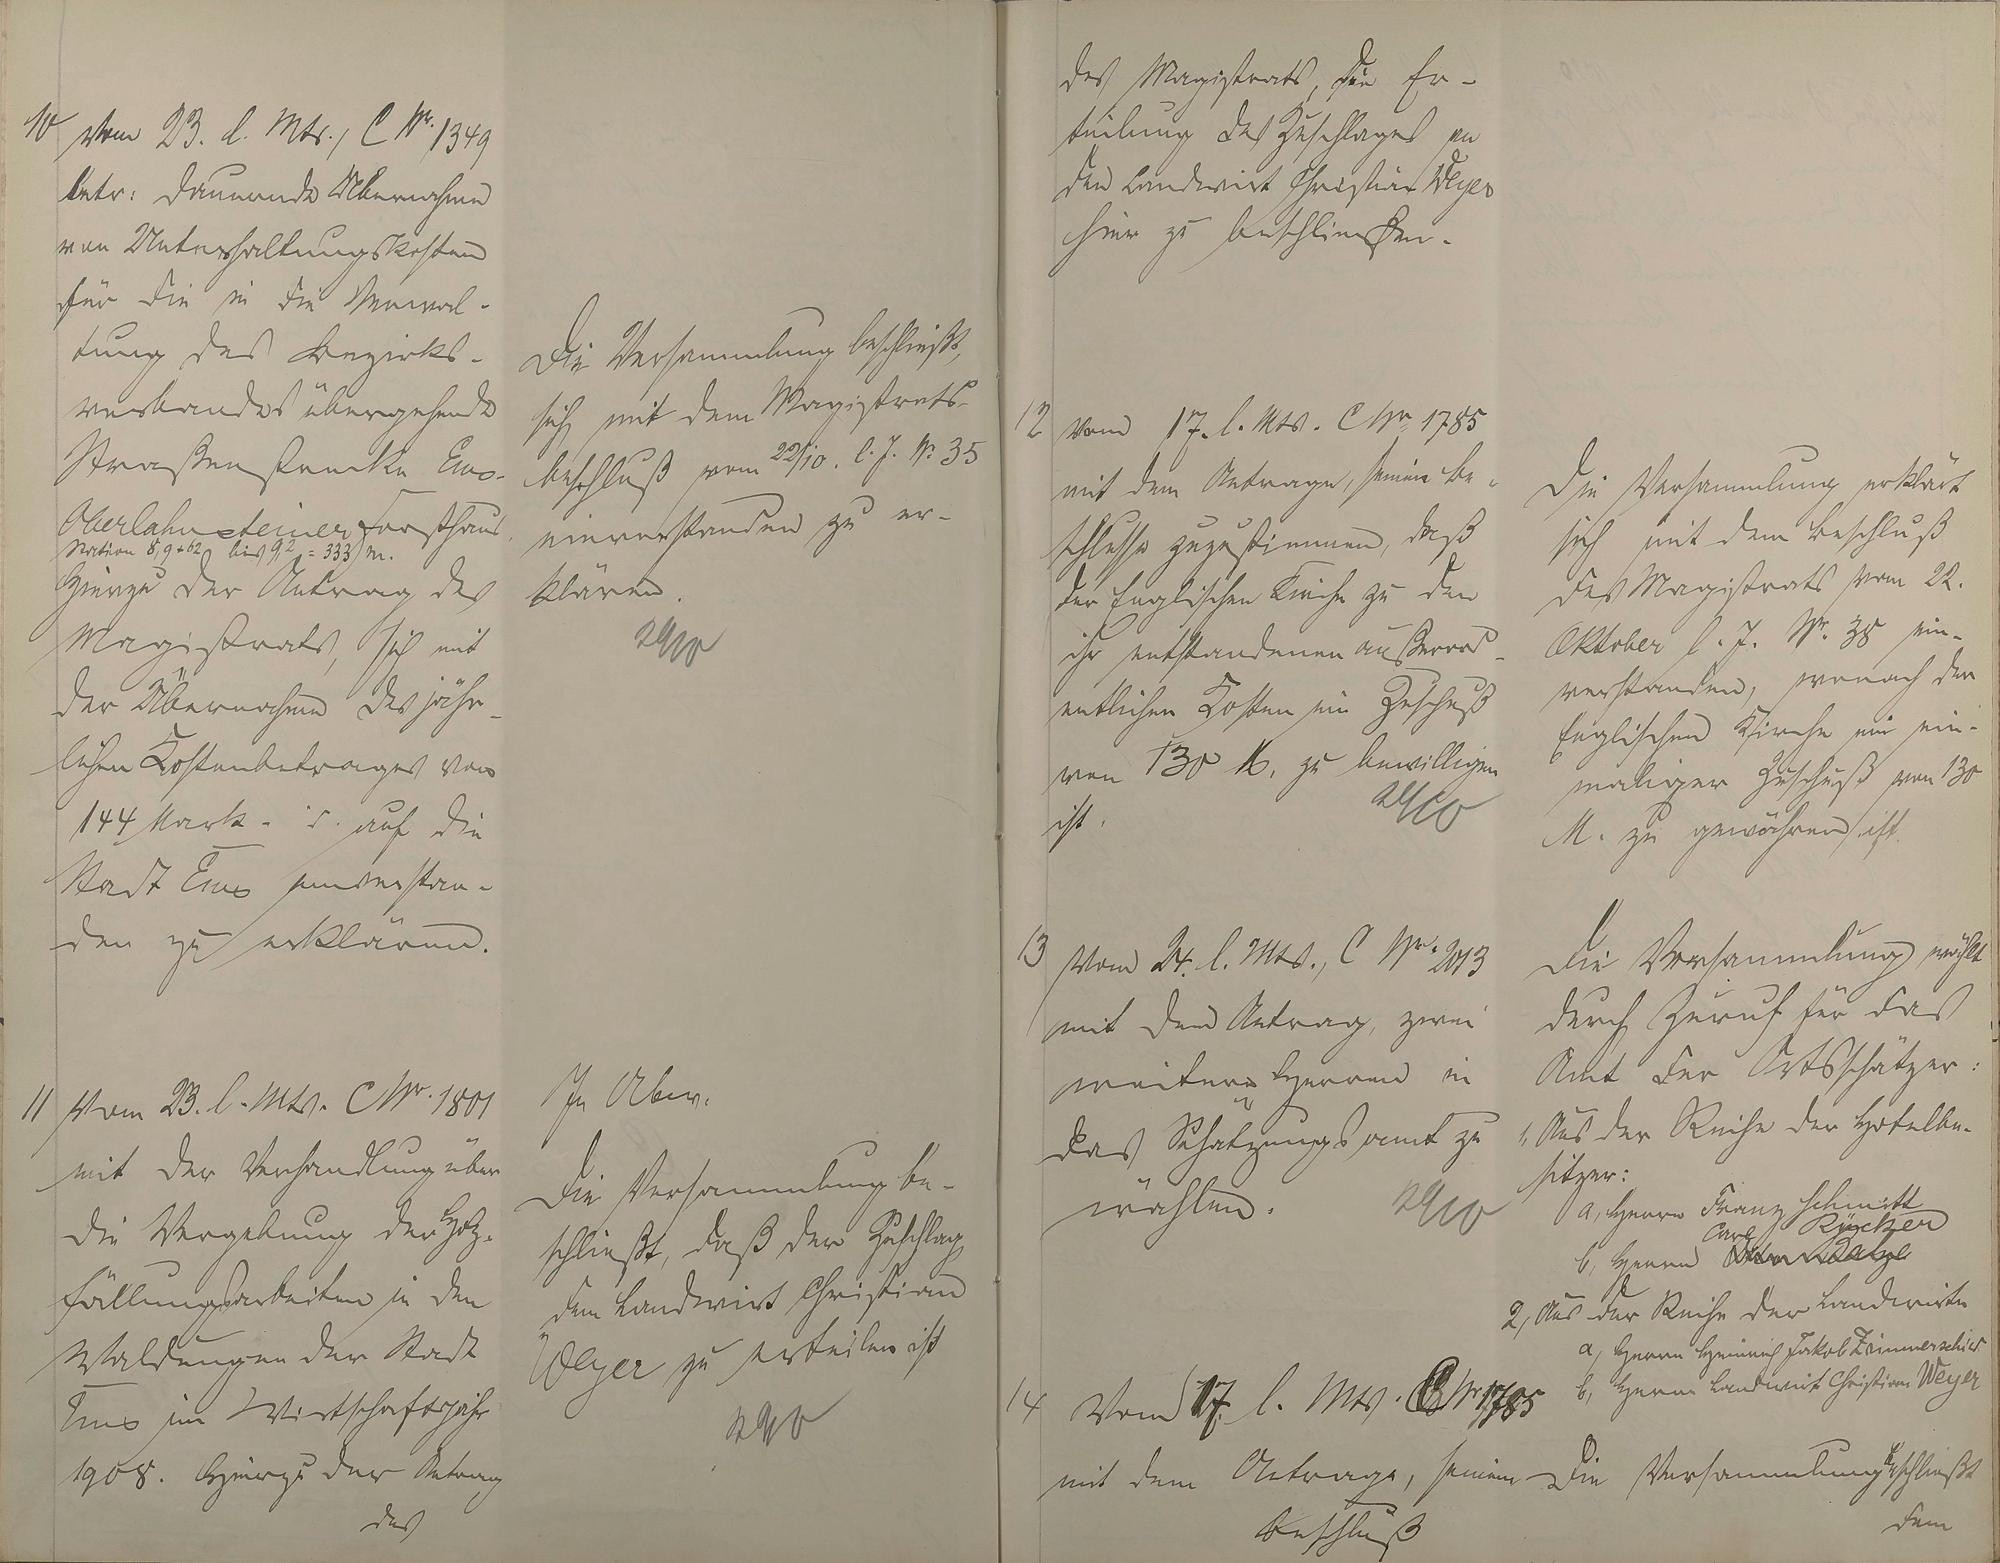 10 Vom 23. l. Mts., C Nr. 1349
betr: dauernde Übernahme
von Unterhaltungskosten
für die in die Verwal-
tung des Bezirks-
verbandes übergehende
Straßenstrecke Ems-
Oberlahnsteiner Forsthaus.
Station 8,9+62 bis 9,2 = 333) m.
Hierzu der Antrag des
Magistrats, sich mit
der Übernahme des jähr-
lichen Kostenbetrages von
144 Mark - auf die
Stadt Ems einverstan-
den zu erklären.
Die Versammlung beschließt,
sich mit dem Magistrats-
beschluß vom 22/10. l. J. Nr. 35
einverstanden zu er-
klären.
29/10
11 Vom 23. l. Mts. C Nr. 1801
mit der Verhandlung über
die Vergebung der Holz-
fällungsarbeiten in den
Waldungen der Stadt
Ems im Wirtschaftsjahr
1908. Hierzu der Antrag
des
Die Versammlung be-
schließt, daß der Zuschlag
dem Landwirt Christian
Weyer zu erteilen ist
29/10
des Magistrats, die Er-
teilung des Zuschlages an
den Landwirt Christian Weyer
hier zu beschließen.
12 Vom 17. l. Mts. C Nr. 1785
mit dem Antrage, seinem Be-
schlusse zuzustimmen, daß
der Englischen Kirche zu den
ihr entstandenen außerord-
entlichen Kosten ein Zuschuß
von 130 M. zu bewilligen
ist.
29/10
Die Versammlung erklärt
sich mit dem Beschluß
des Magistrats vom 22.
Oktober l. J. Nr. 38 ein-
verstanden, wonach der
Englischen Kirche ein ein-
maliger Zuschuß von 130
M. zu gewähren ist.
13 Vom 24. l. Mts., C Nr. 2013
mit dem Antrag, zwei
weitere Herren in
das Schätzungsamt zu
wählen.
29/10
Die Versammlung wählt
durch Zuruf für das
Amt der Ortsschätzer:
1, Aus der Reihe der Hotelbe-
sitzer:
a, Herrn Franz Schmitt
Carl Rücker
b, Herrn
2, Aus der Reihe der Landwirte
a, Herrn Heinrich Jakob Zimmerschied
b, Herrn Landwirt Christian Weyer
14 Vom 17. l. Mts. C Nr 1785
mit dem Antrage, seinem
Beschluß
Die Versammlung beschließt
dem